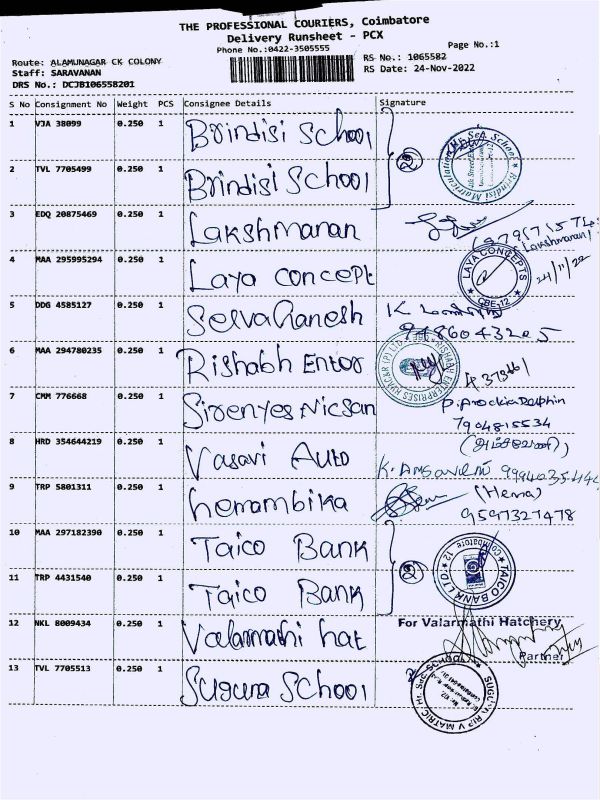 THE PROFESSIONAL COURIERS, Coimbatore
Delivery Runsheet - PCX
Phone No.:0422-3505555
Page No.:1
Route: ALAMUNAGAR CK COLONY
Staff: SARAVANAN
DRS No.: DCJB106558201
RS No.: 1065582
RS Date: 24-Nov-2022
S No Consignment No Weight PCS Consignee Details Signature
1 VJA 38099 0.250 1 Brindisi School
2 TVL 7705499 0.250 1 Brindisi School
②
3 EDQ 20875469 0.250 1 Lakshmanan
(Lakshmanan)
4 MAA 295995294 0.250 1 Laya concept
LAYA CONCEPTS
CBE-12
24/11/22
5 DDG 4585127 0.250 1 Selva Ganesh
9486043205
6 MAA 294780235 0.250 1 Rishabh Enter
7 CMM 776668 0.250 1 Sirenyes Nicsan
7904815534
8 HRD 354644219 0.250 1 Vasavi Auto
9 TRP 5801311 0.250 1 hemambika
(Hema)
9597327478
10 MAA 297182390 0.250 1 Taico Bank
11 TRP 4431540 0.250 1 Taico Bank
②
TAICO BANK LTD.
Coimbatore 12
12 NKL 8009434 0.250 1 Valarmathi hat
For Valarmathi Hatchery
Partner
13 TVL 7705513 0.250 1 Suguna School